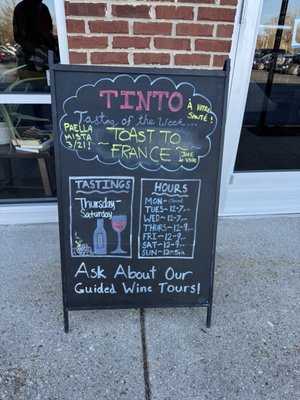 TINTO
Tasting of the Week...
À VOTRE
SANTE!
PAELLA
MISTA
3/21!
~ TOAST TO ~
FRANCE ~
Joie de vivre
TASTINGS
Thursday -
Saturday
HOURS
MON-closed
TUES-12-7pm
WED-12-7pm
THURS-12-8pm
FRI-12-9pm
SAT-12-9pm
SUN-12-5pm
Ask About Our
Guided Wine Tours!